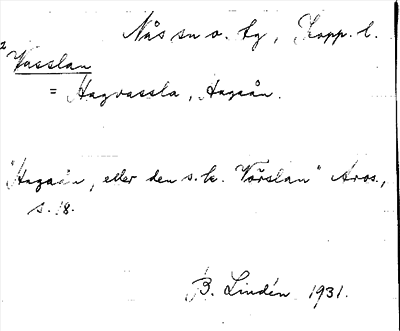 Nås sn o. tg, Kopp. l.
x Vasslan
= Hagvassla, Hagaån.
"Hagaån, eller den s. k. Vörslan" Aros.,
s. 18.
B. Lindén 1931.